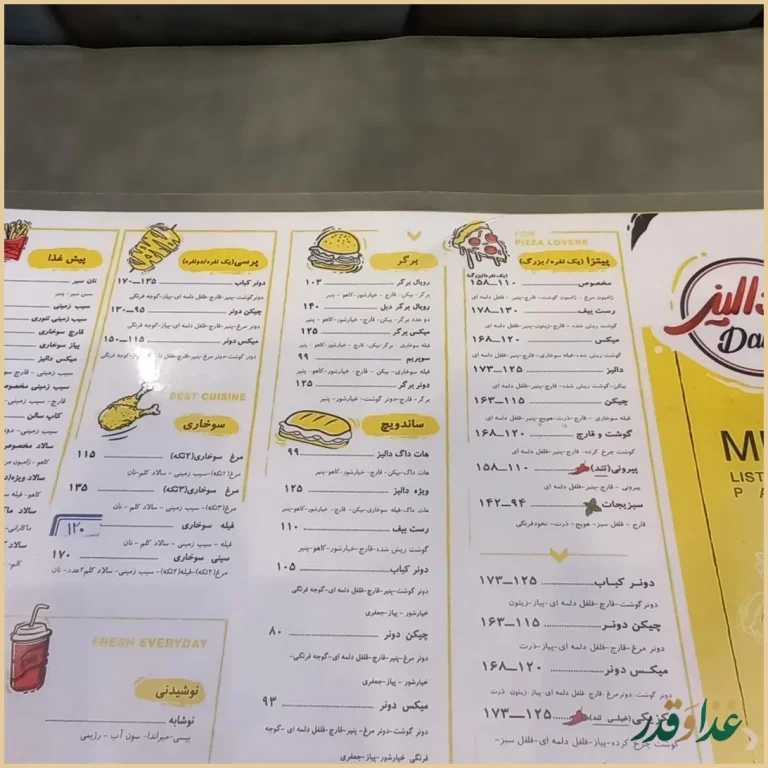 FOR
PIZZA LOVERS
پیتزا (یک نفره/ بزرگ)
(یک نفره/بزرگ)
مخصوص ۱۱۰__۱۵۸
ژامبون مرغ - ژامبون گوشت-قارچ-پنیر- فلفل دلمه ای
رست بیف ۱۳۰__۱۷۸
گوشت ریش شده - قارچ-زیتون-پنیر-فلفل دلمه ای
میکس ۱۲۰__۱۶۸
گوشت ریش شده- فیله سوخاری-قارچ-پنیر-فلفل دلمه ای
دالیز ۱۲۵__۱۷۳
بیکن-گوشت ریش شده - قارچ-پنیر-فلفل دلمه ای
چیکن ۱۱۵__۱۶۳
فیله سوخاری - قارچ-ذرت-هویج-پنیر - فلفل دلمه ای
گوشت و قارچ ۱۲۰__۱۶۸
گوشت چرخ کرده- قارچ-پنیر-فلفل دلمه ای
پپرونی (تند) ۱۱۰__۱۵۸
پپرونی - قارچ-پنیر-فلفل دلمه ای
سبزیجات ۹۴__۱۴۲
قارچ - فلفل سبز- هویج - ذرت- نخودفرنگی
دونر کباب ۱۲۵__۱۷۳
دونر گوشت-قارچ-فلفل دلمه ای-پیاز-زیتون
چیکن دونر ۱۱۵__۱۶۳
دونر مرغ-قارچ-فلفل دلمه ای-پیاز-ذرت
میکس دونر ۱۲۰__۱۶۸
دونر گوشت-دونرمرغ- قارچ- فلفل دلمه ای -پیاز-زیتون- ذرت
(خیلی تند) ۱۲۵__۱۷۳
گوشت چرخ کرده-پیاز-فلفل دلمه ای-فلفل سبز-
برگر
رویال برگر ۱۰۳
برگر-بیکن - قارچ - خیارشور-کاهو - پنیر
رویال برگر دبل ۱۴۰
دو عدد برگر-بیکن - قارچ- خیارشور-کاهو- پنیر
میکس برگر ۱۲۵
فیله سوخاری- برگر-بیکن-قارچ - خیارشور-کاهو-پنیر
سوپریم ۹۹
فیله سوخاری-بیکن - قارچ- خیارشور-کاهو- پنیر
دونر برگر ۱۲۵
برگر-قارچ-دونر گوشت-خیارشور-پنیر
ساندویچ
هات داگ دالیز ۹۹
هات داگ-بیکن - قارچ- خیارشور-کاهو-پنیر
ویژه دالیز ۱۲۵
هات داگ-فیله سوخاری-بیکن-قارچ- خیارشور-کاهو-پنیر
رست بیف ۱۱۰
گوشت ریش شده-قارچ-خیارشور-کاهو-پنیر
دونر کباب ۱۰۵
دونر گوشت-پنیر-قارچ-فلفل دلمه ای-گوجه فرنگی
خیارشور - پیاز-جعفری
چیکن دونر ۸۰
دونر مرغ-پنیر-قارچ-فلفل دلمه ای-گوجه فرنگی-
خیارشور - پیاز-جعفری
میکس دونر ۹۳
دونر گوشت-دونر مرغ- پنیر-قارچ-فلفل دلمه ای -گوجه
فرنگی خیارشور-پیاز-جعفری
پرسی (یک نفره/دونفره)
دونر کباب ۱۳۵__۱۷۰
دونر گوشت-پنیر-قارچ-فلفل دلمه ای-پیاز-گوجه فرنگی
چیکن دونر ۹۵__۱۳۰
دونر مرغ-پنیر-قارچ-فلفل دلمه ای-پیاز-گوجه فرنگی
میکس دونر ۱۱۵__۱۵۰
دونر گوشت-دونر مرغ-پنیر-قارچ-فلفل دلمه ای-پیاز-گوجه فرنگی
BEST CUISINE
سوخاری
مرغ سوخاری (۲تکه) ۱۱۵
مرغ(۲تکه)-سیب زمینی - سالاد کلم-نان
مرغ سوخاری (۳تکه) ۱۳۵
مرغ(۳تکه)-سیب زمینی - سالاد کلم - نان
فیله سوخاری ۱۲۰
فیله - سیب زمینی - سالاد کلم - نان
سینی سوخاری ۱۷۰
مرغ(۲تکه)-فیله(۲تکه)-سیب زمینی- سالاد کلم۲عدد-نان
FRESH EVERYDAY
نوشیدنی
نوشابه
پپسی-میراندا- سون آپ - رژیمی
پیش غذا
نان سیر
سس سیر - پنیر
سیب زمینی
سیب زمینی تنوری
قارچ سوخاری
پیاز سوخاری
میکس دالیز
سیب زمینی - قارچ سو
سیب زمینی مخصوص
قارچ - سیب زمینی-
کاپ سالن
سالاد مخصوص
کاهو - ژامبون مر
سالاد ویژه/د
کاهو- فیله س
سالاد ما
ماکارانی-
سالاد ک
کلم-
دالیز
Da
M
LIST
P A
غذا و قدر